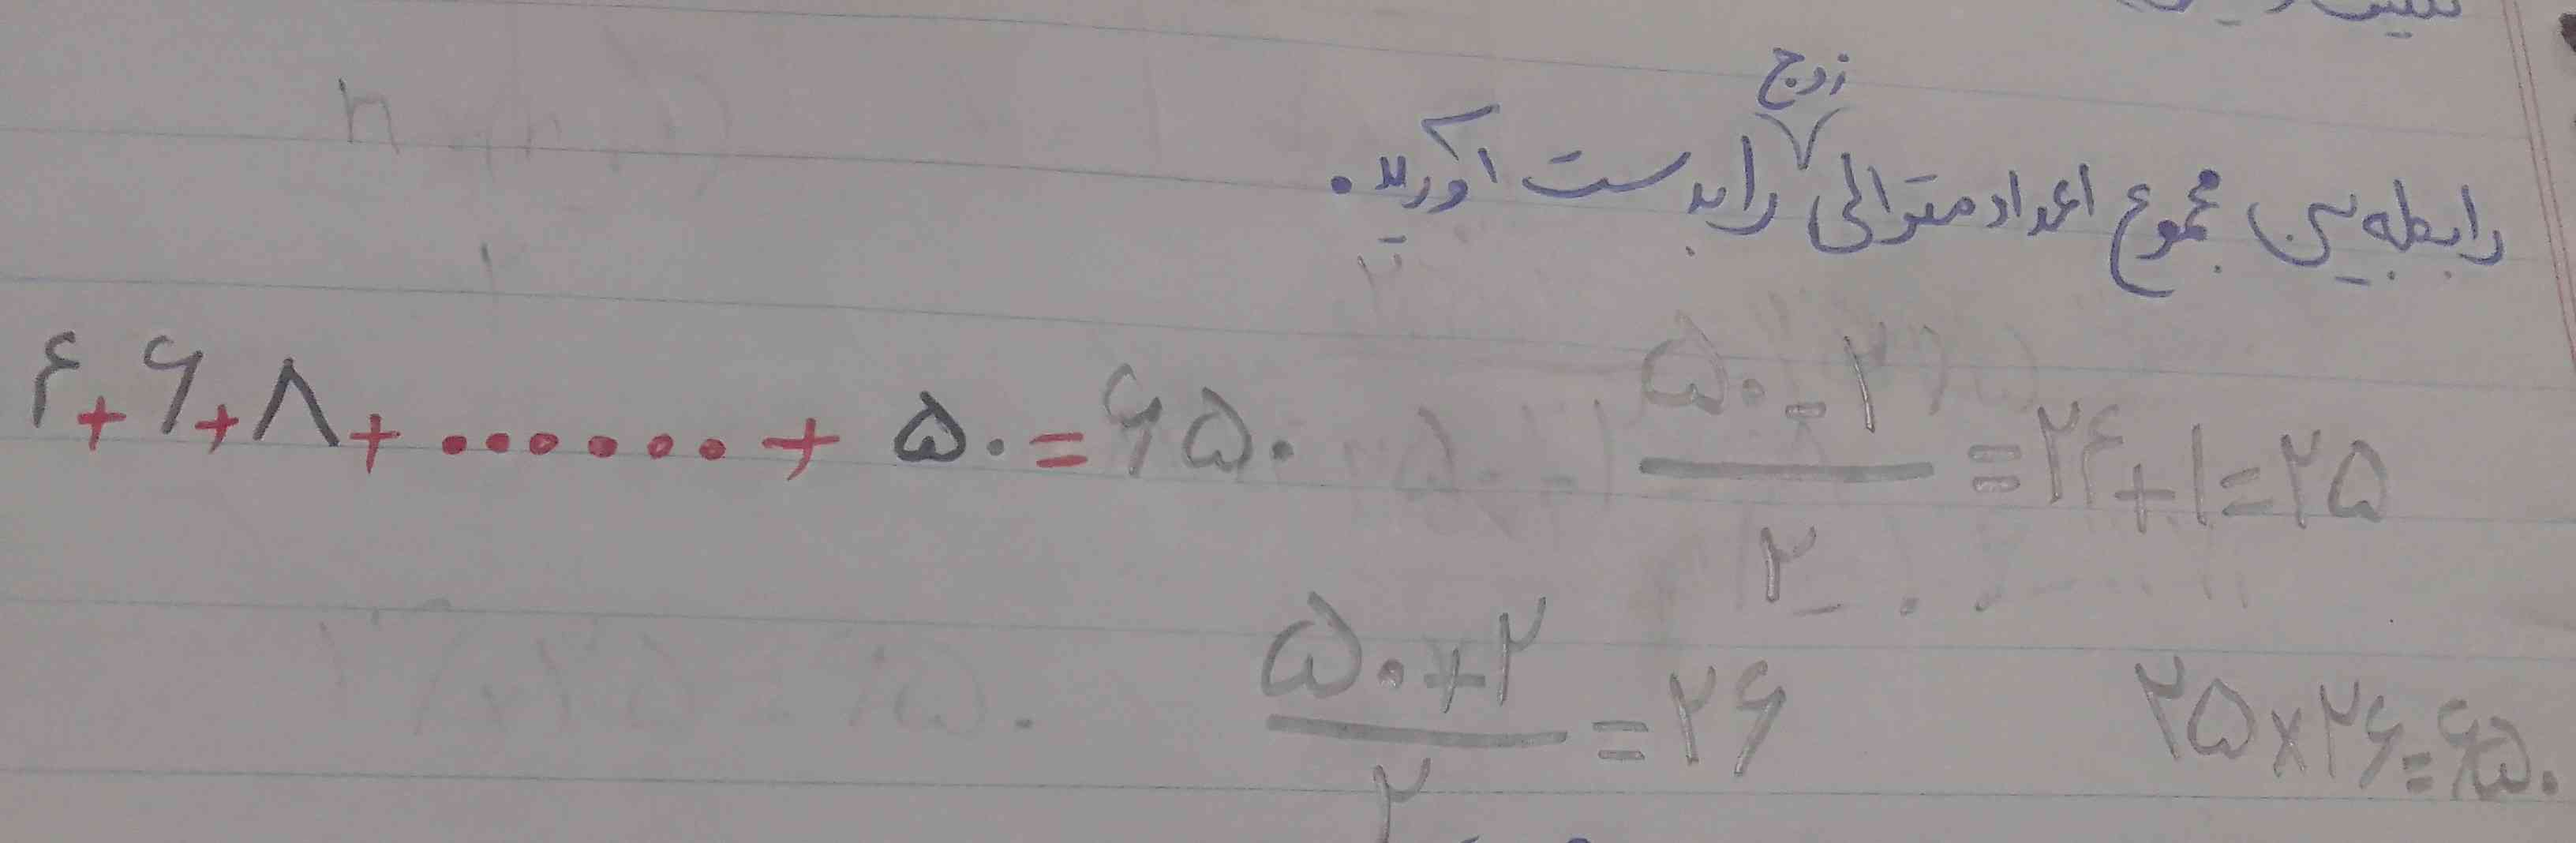 زوج
رابطه بین مجموع اعداد متوالی را بدست آورید.
۴+۶+۸+......+ ۵۰=۶۵۰
۵۰-۲ / ۲ =۲۴+۱=۲۵
۵۰+۲ / ۲ =۲۶
۲۵×۲۶=۶۵۰